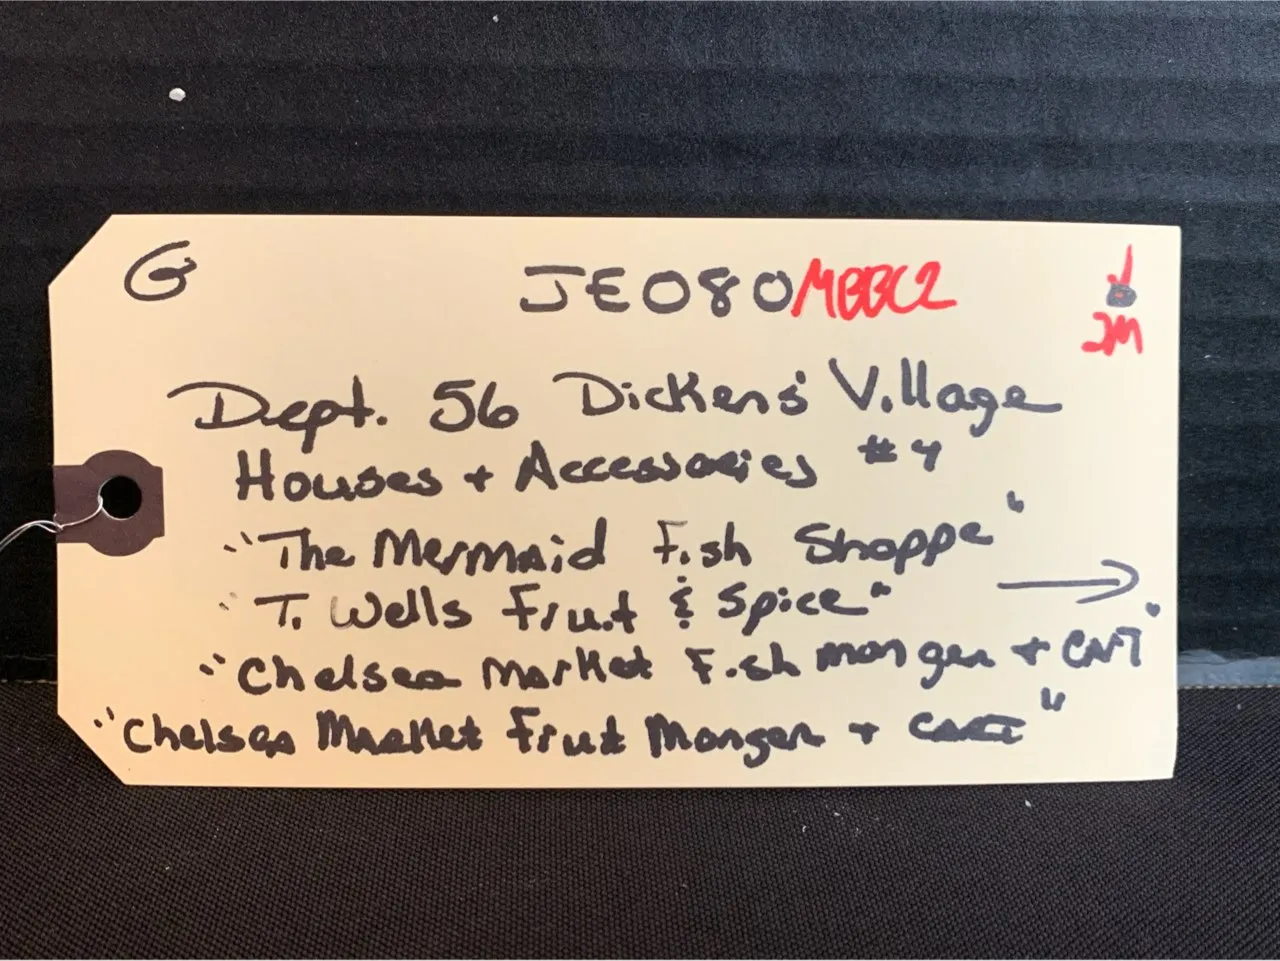 G JE080MBBC2
2M
Dept. 56 Dickens' Village
Houses + Accessories #4
"The Mermaid Fish Shoppe"
"T. Wells Fruit & Spice" →
"Chelsea Market Fishmonger + CART"
"Chelsea Market Fruit Monger + CART"